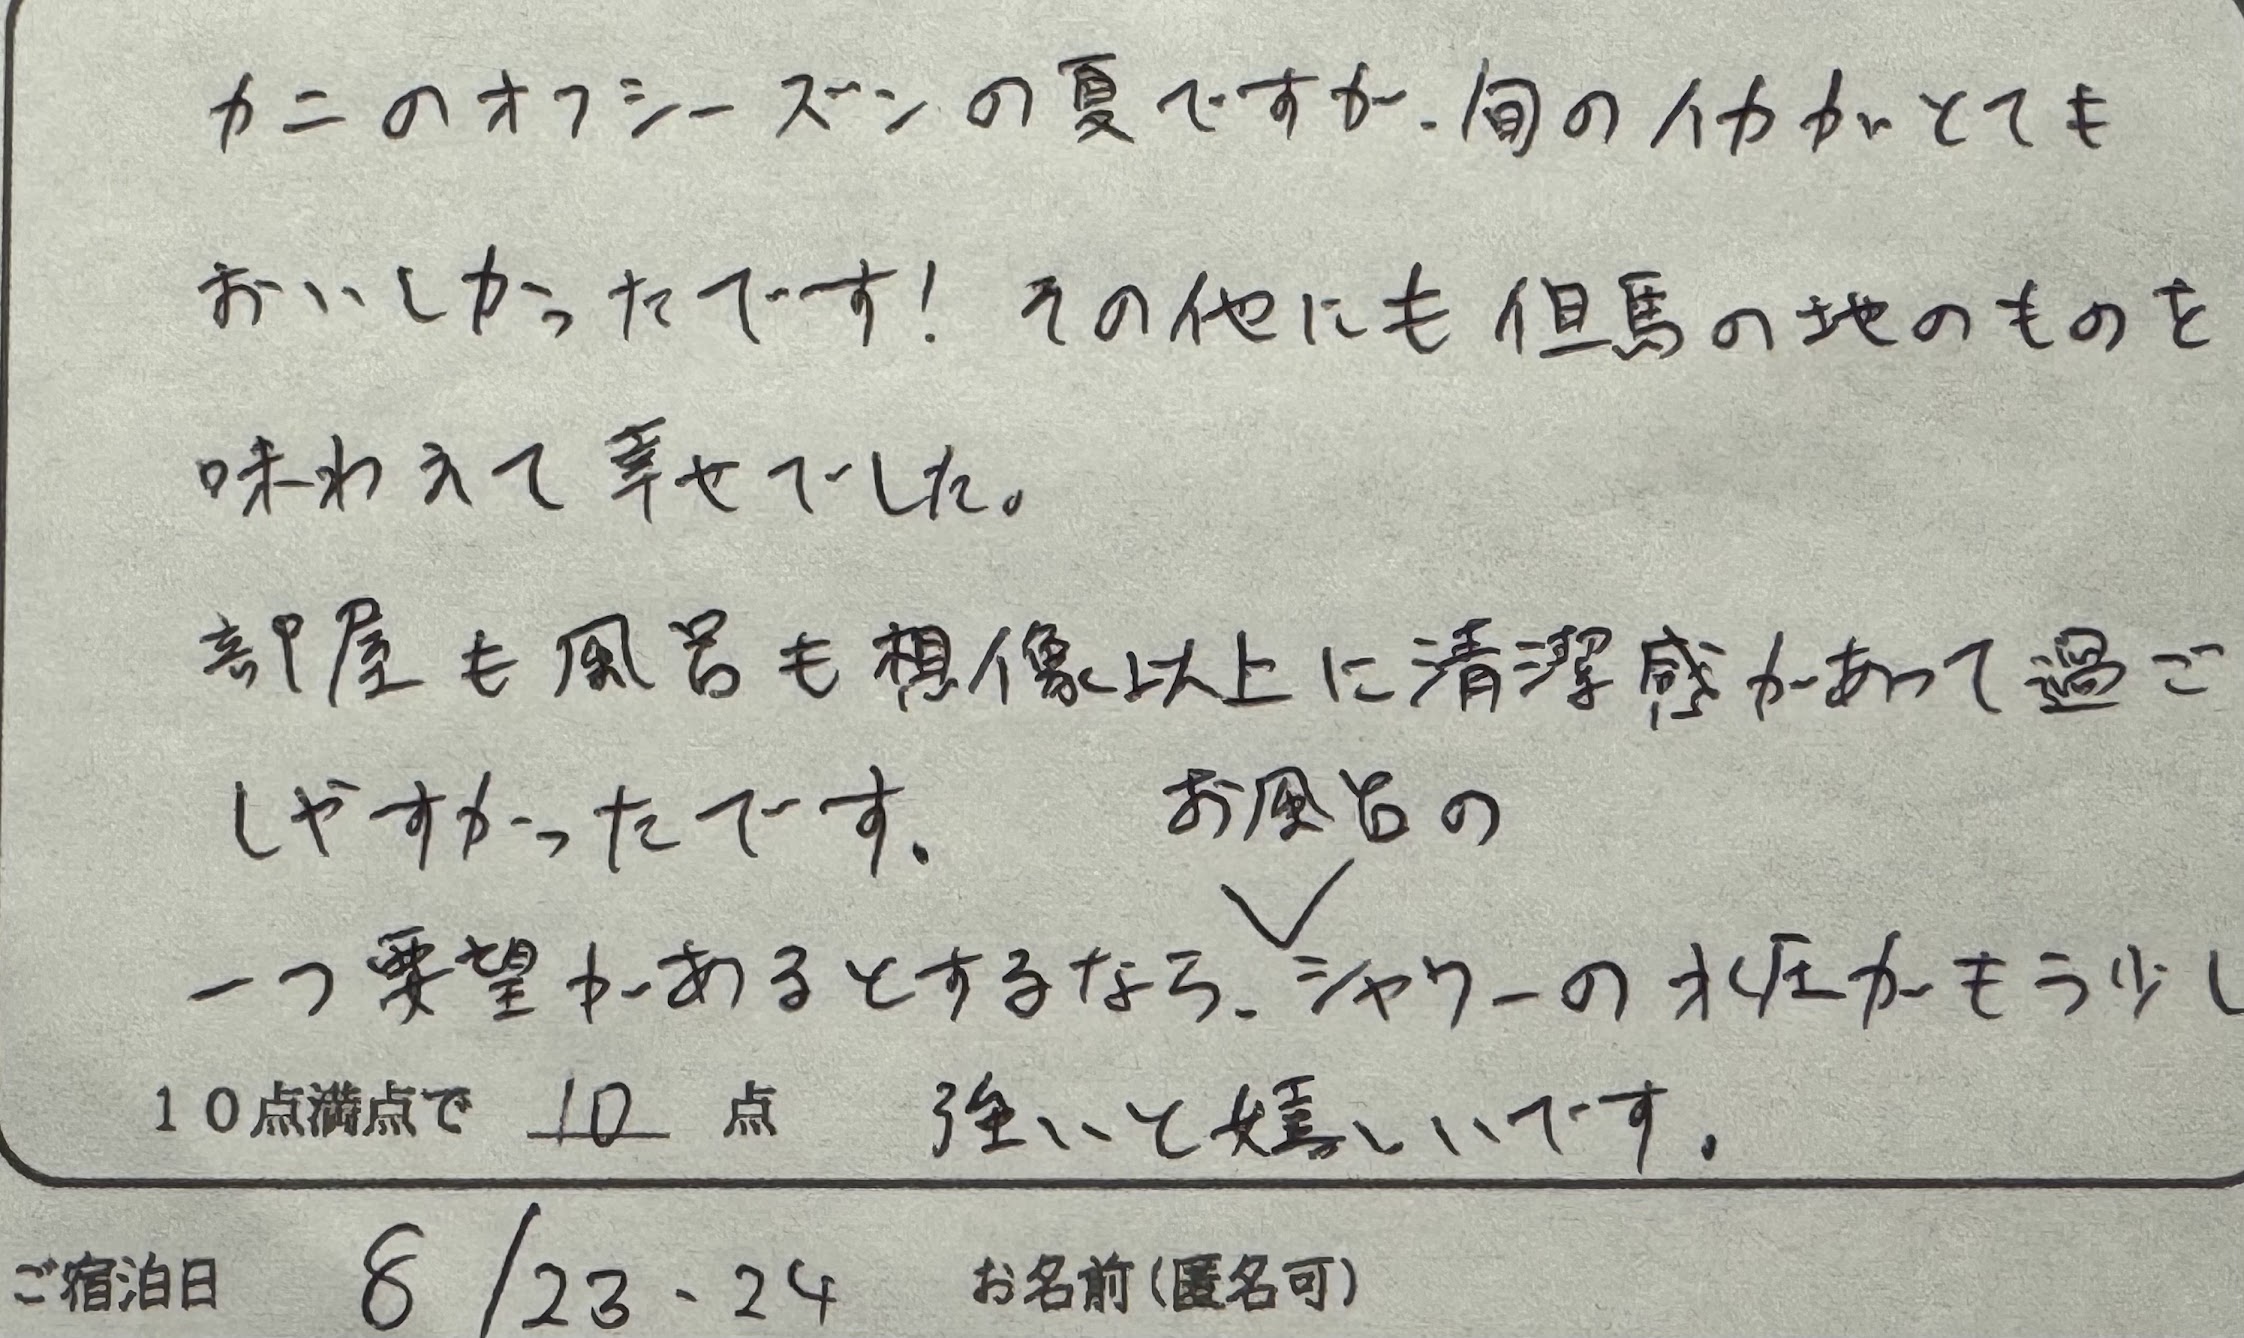 カニのオフシーズンの夏ですが、旬のイカがとても
おいしかったです！ その他にも但馬の地のものを
味わえて幸せでした。
部屋も風呂も想像以上に清潔感があって過ご
しやすかったです。
お風呂の
一つ要望があるとするなら、シャワーの水圧がもう少し
10点満点で 10 点 強いと嬉しいです。
ご宿泊日 8/23、24 お名前(匿名可)